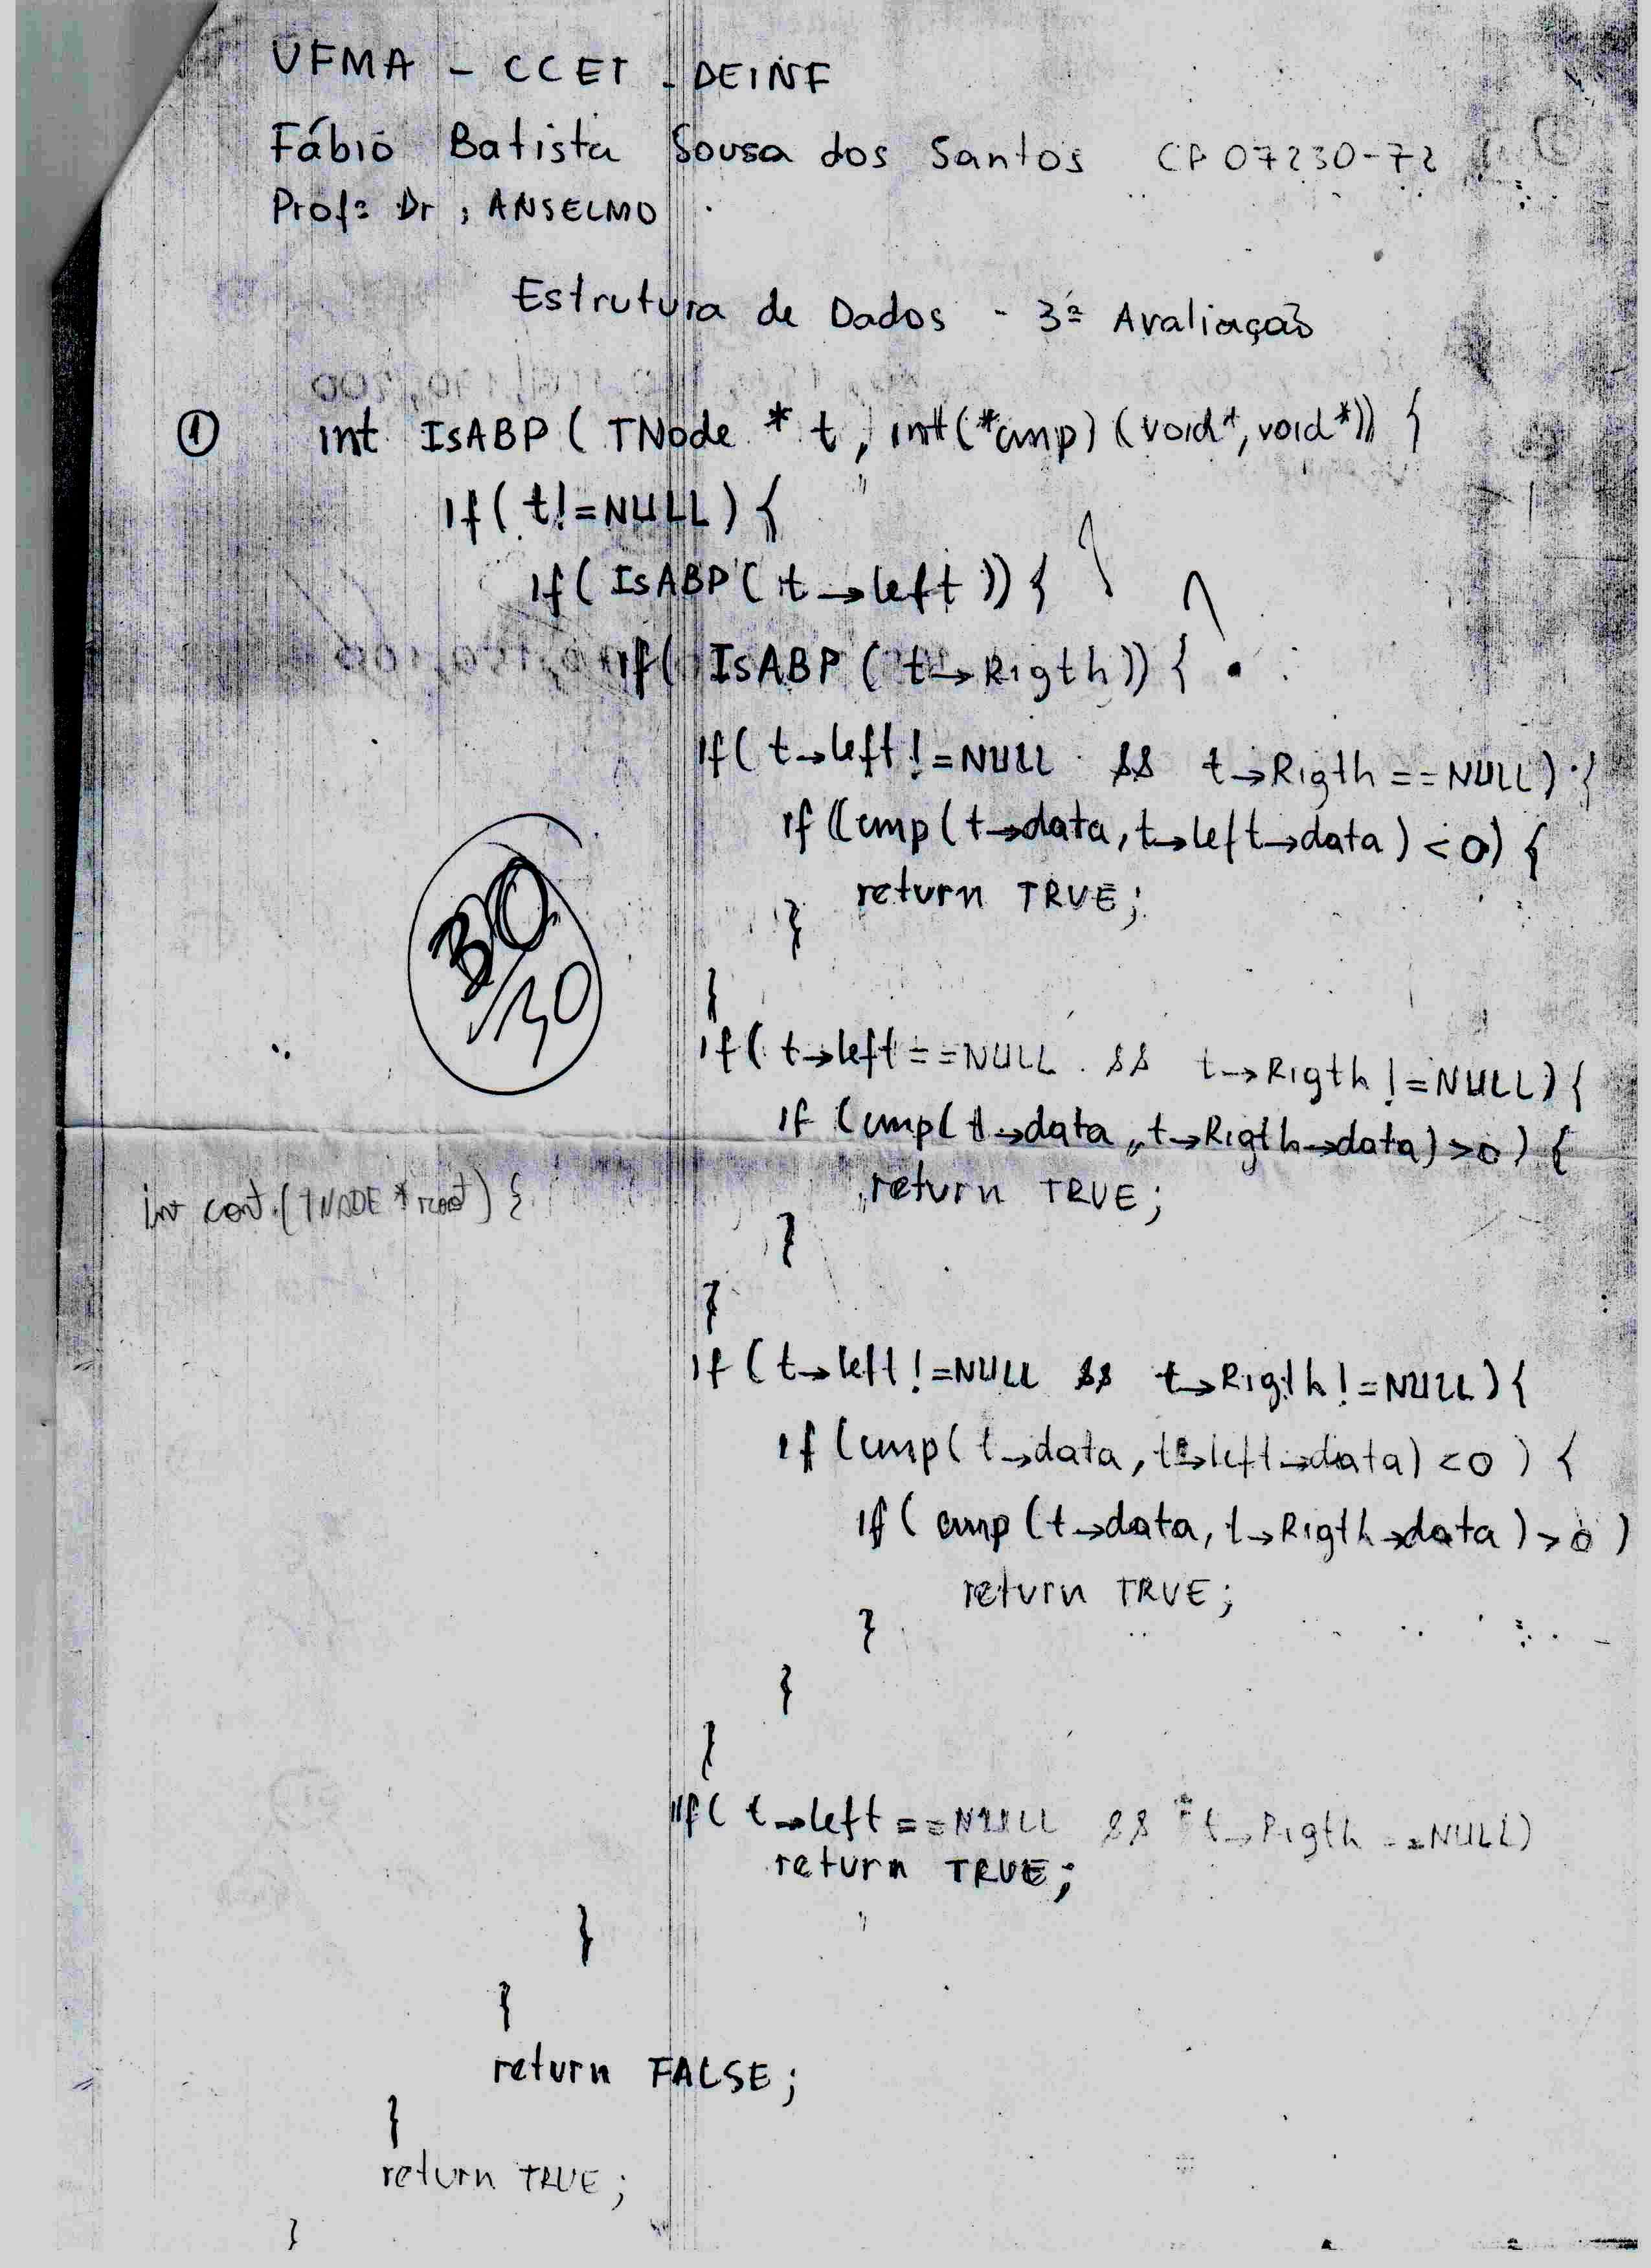 UFMA - CCET - DEINF
Fábio Batista Sousa dos Santos CP 07230-72
Prof: Dr, ANSELMO
Estrutura de Dados - 3ª Avaliação
① int IsABP ( TNode * t, int (*cmp) (void*, void*)) {
if ( t != NULL ) {
if ( IsABP ( t → left )) {
if ( IsABP ( t → Rigth )) {
if ( t → left != NULL && t → Rigth == NULL ) {
if ((cmp ( t → data, t → left → data ) < 0 ) {
return TRUE;
}
}
30/30
if ( t → left == NULL && t → Rigth != NULL ) {
if (cmp( t → data, t → Rigth → data) > 0 ) {
int cont (TNODE * root) {
return TRUE;
}
}
if ( t → left != NULL && t → Rigth != NULL ) {
if (cmp( t → data, t → left → data) < 0 ) {
if ( cmp ( t → data, t → Rigth → data ) > 0 )
return TRUE;
}
}
}
if ( t → left == NULL && t → Rigth == NULL )
return TRUE;
}
}
return FALSE;
}
return TRUE;
}